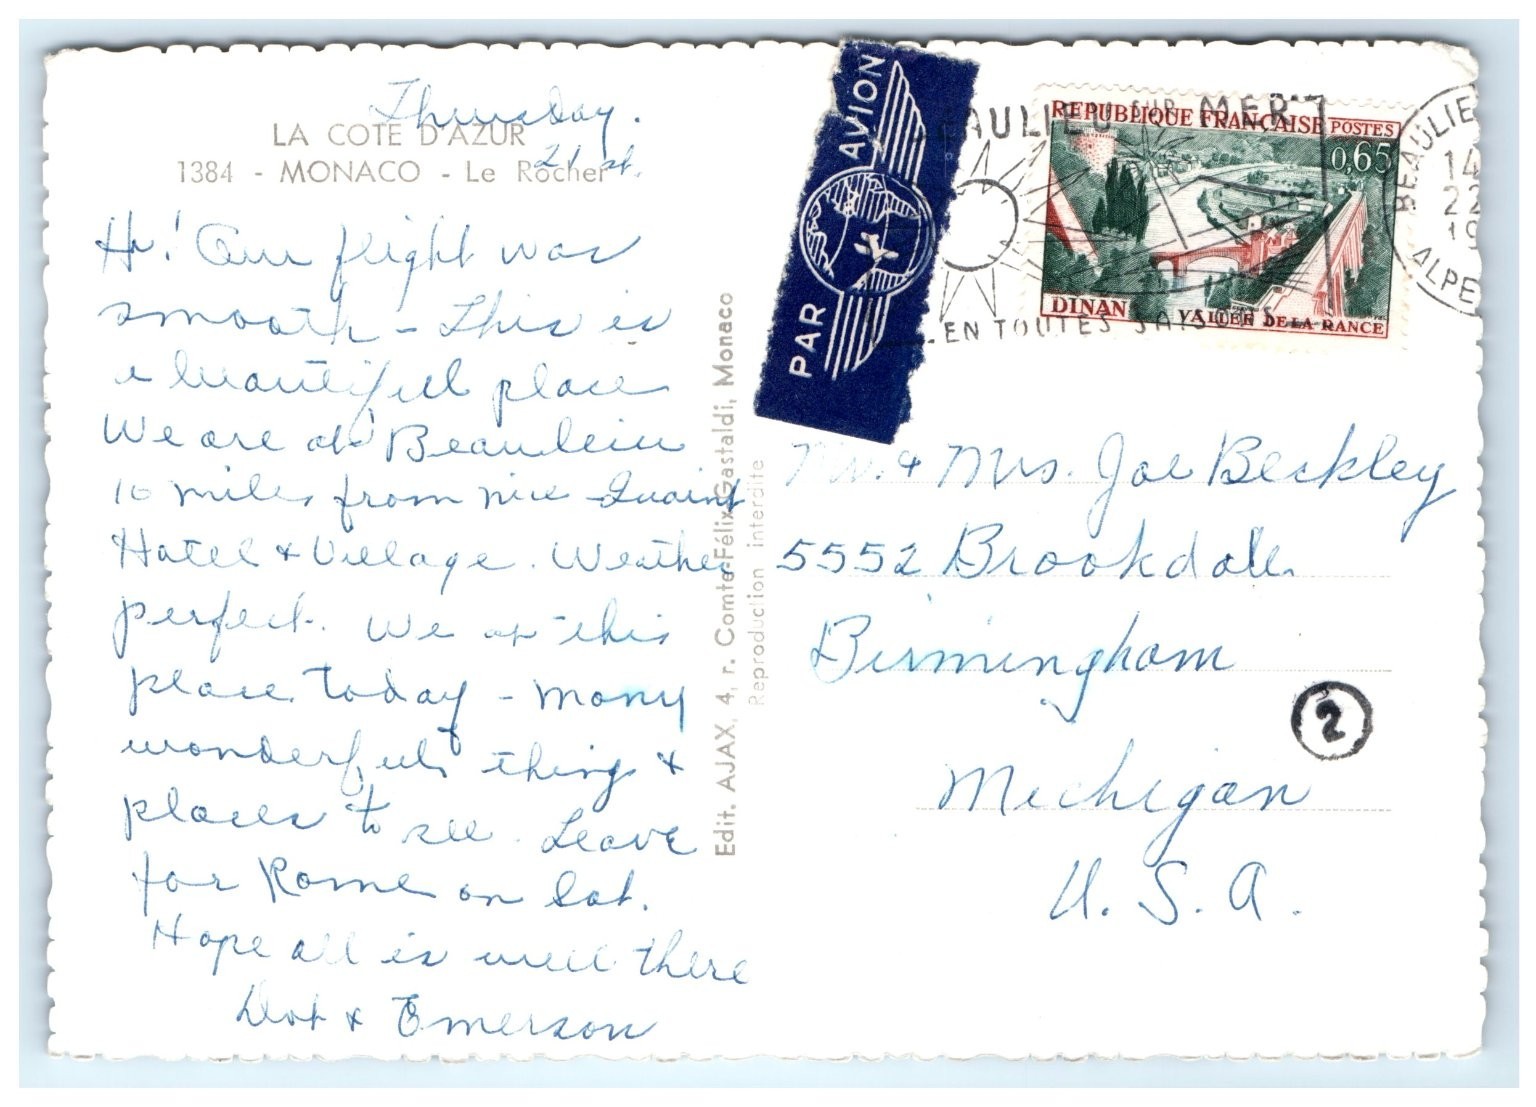 Thursday.
21 st.
LA COTE D'AZUR
1384 - MONACO - Le Rocher
Hi! Our flight was
smooth - This is
a beautiful place
We are at Beaulieu
10 miles from Nice Quaint
Hotel & Village. Weather
perfect. We at this
place today - Many
wonderful things &
places to see. Leave
for Rome on Sat.
Hope all is well there
Dot & Emerson
Edit. AJAX, 4, r. Comte-Félix-Gastaldi, Monaco
Reproduction interdite
PAR AVION
BEAULIEU SUR MER
EN TOUTES SAISONS
REPUBLIQUE FRANÇAISE POSTES
0,65
DINAN VALLEE DE LA RANCE
BEAULIE
14
22
19
ALPE
Mr. & Mrs. Joe Beckley
5552 Brookdale
Birmingham
2
Michigan
U. S. A.